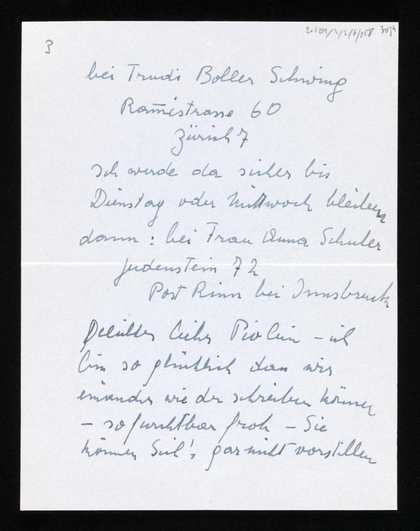 3
bei Trudi Boller Schwing
Ramistrasse 60
Zürich 7
Ich werde da sicher bis
Dienstag oder Mittwoch bleiben
dann: bei Frau Anna Schuler
Judenstein 72
Post Rinn bei Innsbruck
lieber Piolein – ich
bin so glücklich dass wir
einander wieder schreiben können
– so furchtbar froh – Sie
können Sich's gar nicht vorstellen